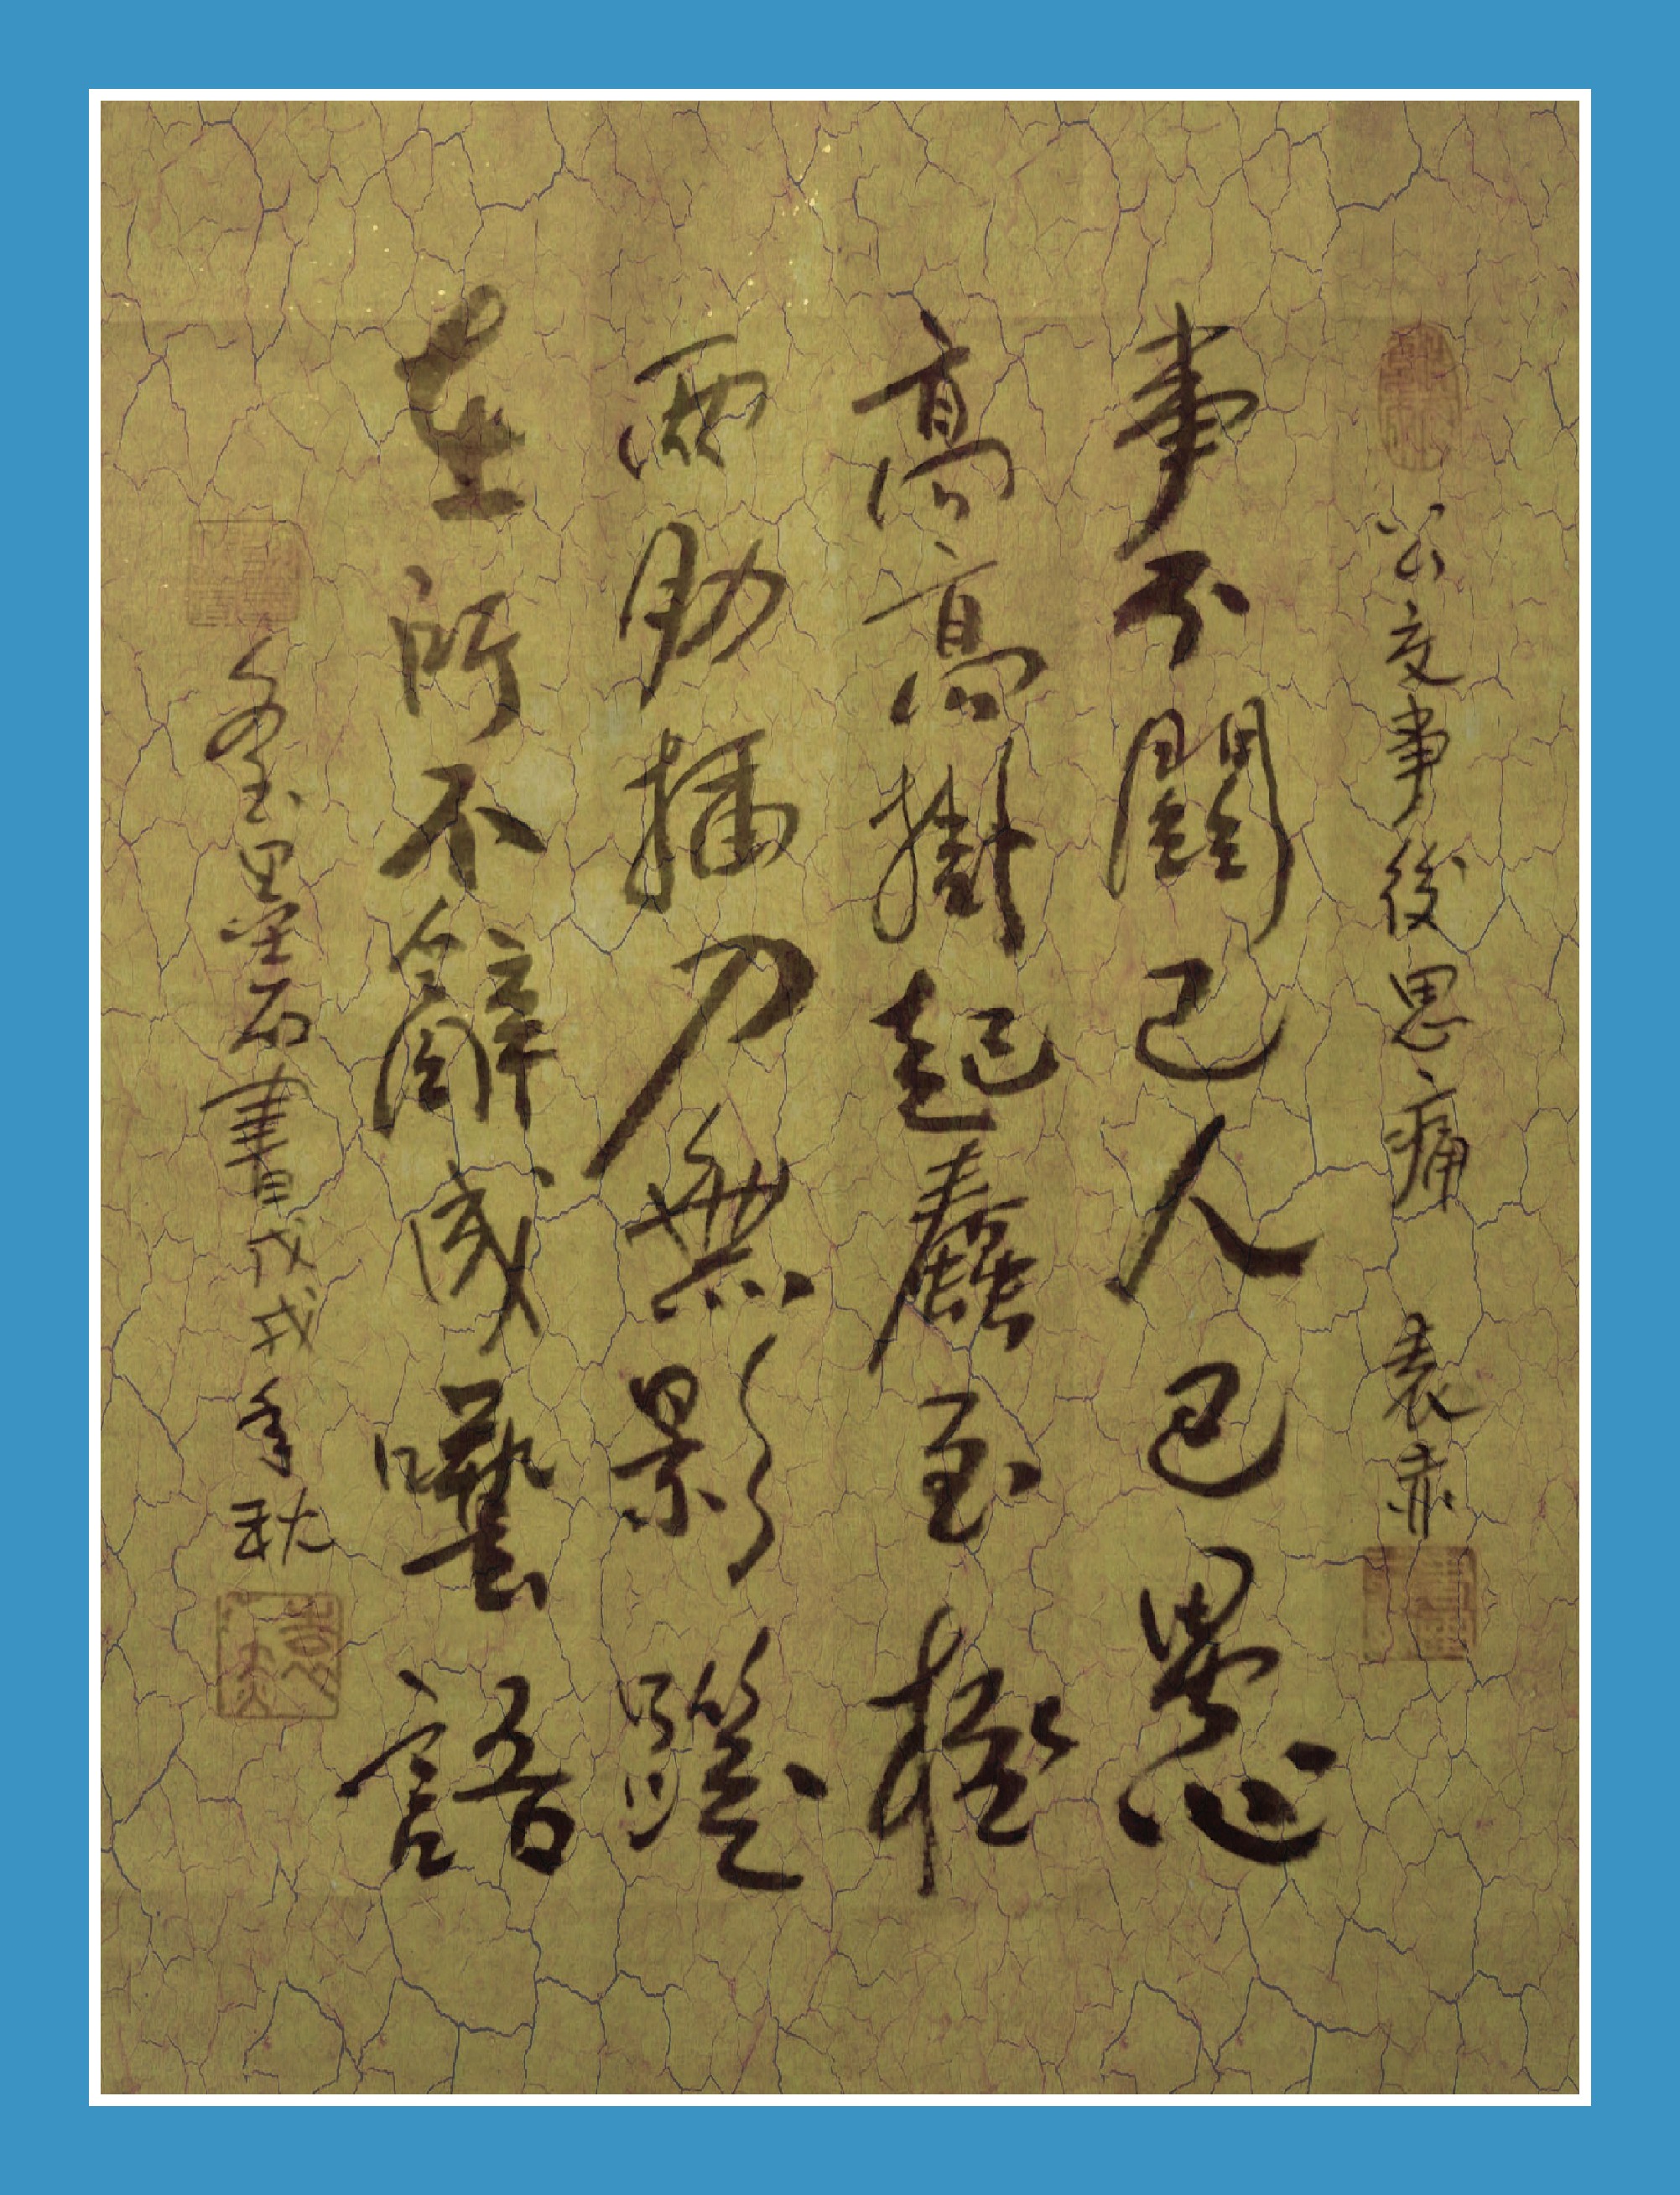 公交事後思痛 袁赤
事不關己人已愚
高高掛起蠢至極
兩肋插刀無影蹤
在所不辭成囈語
里墨石書戊戌年秋